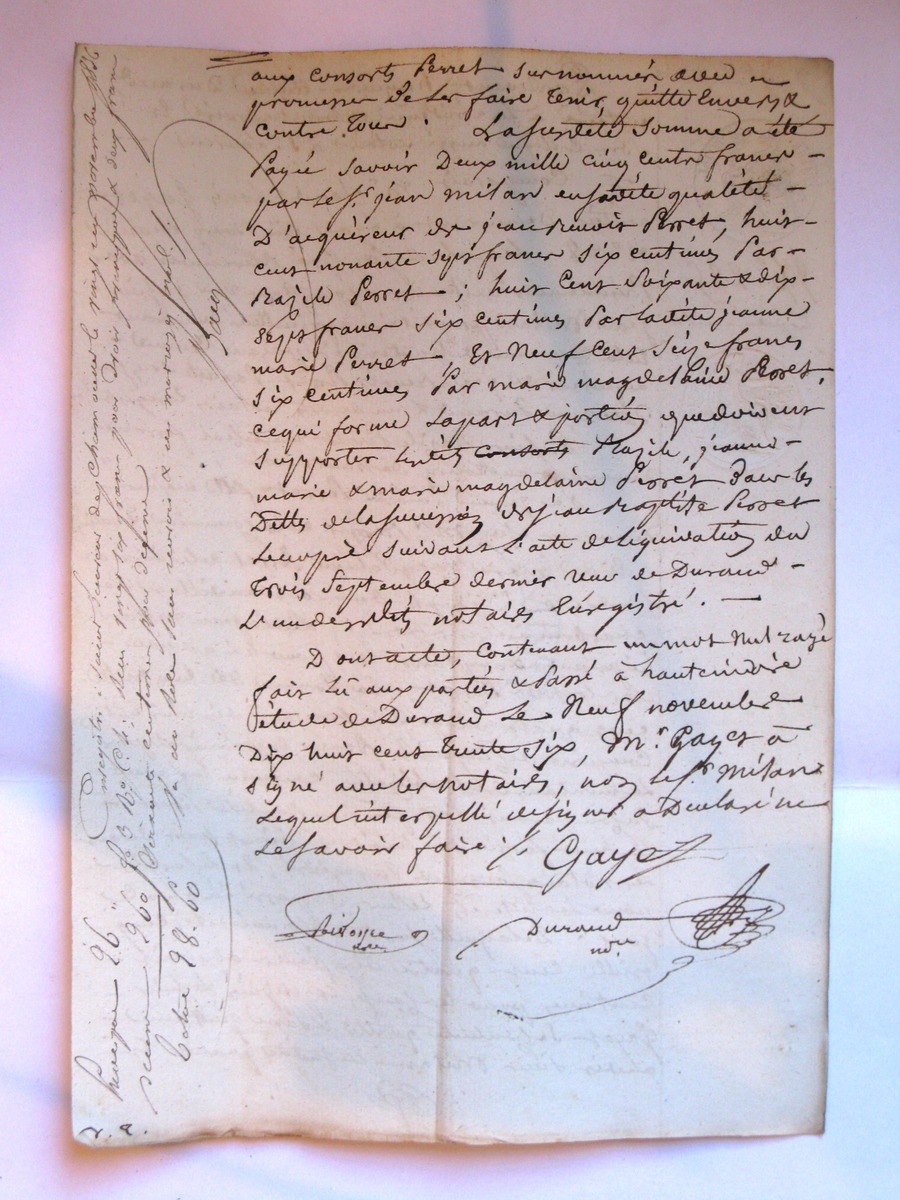 aux consorts Perret surnommés avec
promesse de les faire tenir quitte Envers &
contre Tous. La susdite Somme a été
Payée Savoir Deux mille cinq cents francs –
par le Sr. jean milan en sadite qualité –
D'acquéreur de jean Benoit Perret, huit –
cent nonante sept francs six centimes Par –
Bazile Perret ; huit Cent Soixante & dix –
sept francs six centimes Par ladite jeanne
marie Perret, Et Neuf Cent Seize francs
six centimes Par marie magdelaine Perret,
ce qui forme la part & portion que doivent
supporter lesdits consorts Bazile, jeanne –
marie & marie magdelaine Perret Dans les
Dettes de la succession de jean Baptiste Perret
Leur père suivant l'acte de liquidation du
Trois Septembre dernier reçu de Durand –
L'un desdits notaires Enregistré. —
Dont acte, contenant un mot Nul rayé
fait lu aux parties & Passé à hauterivoire
étude de Durand Le Neuf novembre
Dix huit cent trente six, Mr. Gayet a
signé avec les notaires, non le Sr. Milan
Lequel interpellé de signer a Déclaré ne
Le Savoir faire ./.
Gayet
Durand
nore
nore
Enregistré à Saint Laurent de Chamousset le vingt un novembre 1836
reçu vingt six francs pour droit principal & deux francs
soixante centimes pour décime
Principal 26 "
Décime 2 60
Total 28. 60